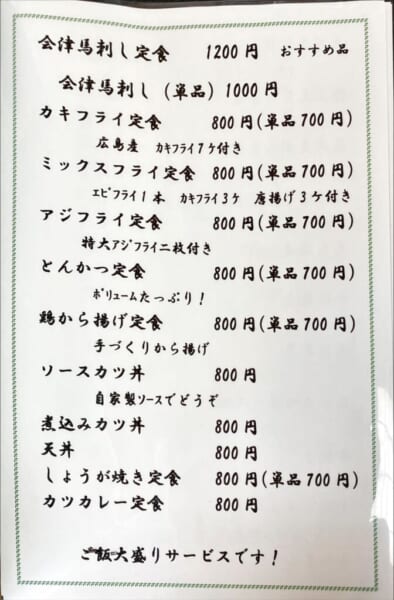 会津馬刺し定食 1200円 おすすめ品
会津馬刺し(単品)1000円
カキフライ定食 800円(単品700円)
広島産 カキフライ7ケ付き
ミックスフライ定食 800円(単品700円)
エビフライ1本 カキフライ3ケ 唐揚げ3ケ付き
アジフライ定食 800円(単品700円)
特大アジフライ二枚付き
とんかつ定食 800円(単品700円)
ボリュームたっぷり!
鶏から揚げ定食 800円(単品700円)
手づくりから揚げ
ソースカツ丼 800円
自家製ソースでどうぞ
煮込みカツ丼 800円
天丼 800円
しょうが焼き定食 800円(単品700円)
カツカレー定食 800円
ご飯大盛りサービスです!